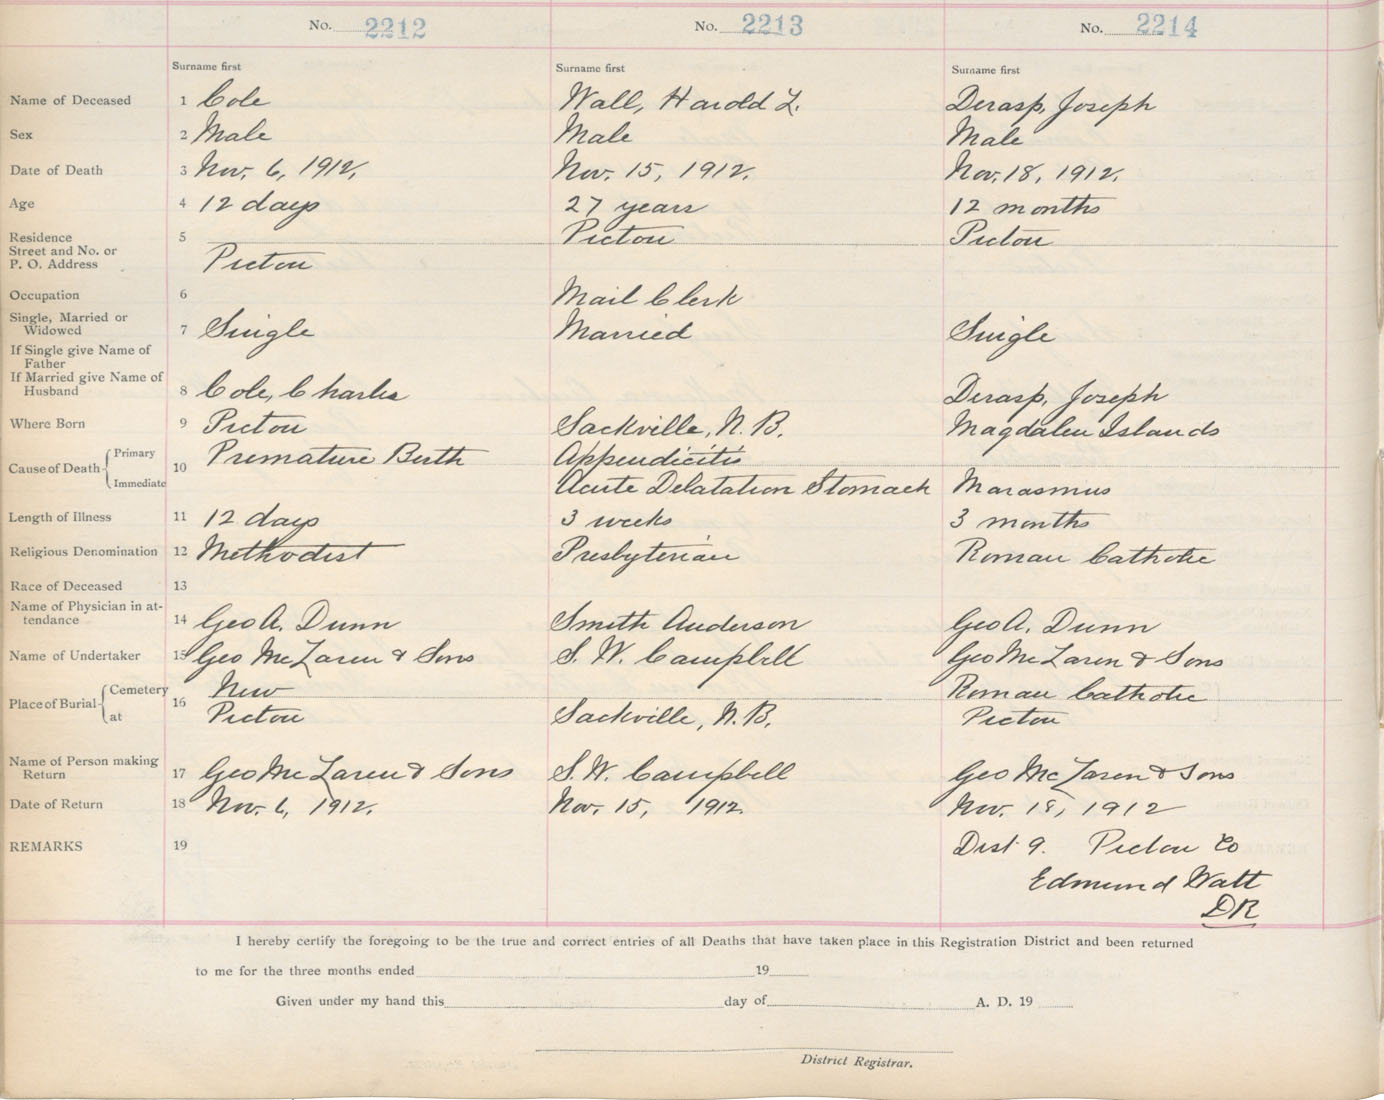 No. 2212 No. 2213 No. 2214
Surname first Surname first Surname first
Name of Deceased 1 Cole Wall, Harold L. Derasp, Joseph
Sex 2 Male Male Male
Date of Death 3 Nov. 6, 1912. Nov. 15, 1912. Nov. 18, 1912.
Age 4 12 days 27 years 12 months
Residence 5 Pictou Pictou
Street and No. or
P. O. Address Pictou
Occupation 6 Mail Clerk
Single, Married or
Widowed 7 Single Married Single
If Single give Name of
Father
If Married give Name of
Husband 8 Cole, Charles Derasp, Joseph
Where Born 9 Pictou Sackville, N. B. Magdalen Islands
Cause of Death Primary 10 Premature Birth Appendicitis
Immediate Acute Delatation Stomach Marasmus
Length of Illness 11 12 days 3 weeks 3 months
Religious Denomination 12 Methodist Presbyterian Roman Catholic
Race of Deceased 13
Name of Physician in at-
tendance 14 Geo A. Dunn Smith Anderson Geo A. Dunn
Name of Undertaker 15 Geo McLaren & Sons S. W. Campbell Geo McLaren & Sons
Place of Burial Cemetery 16 New Roman Catholic
at Pictou Sackville, N. B. Pictou
Name of Person making
Return 17 Geo McLaren & Sons S. W. Campbell Geo McLaren & Sons
Date of Return 18 Nov. 6, 1912. Nov. 15, 1912. Nov. 18, 1912
REMARKS 19 Dist 9. Pictou Co
Edmund Watt
DR
I hereby certify the foregoing to be the true and correct entries of all Deaths that have taken place in this Registration District and been returned
to me for the three months ended 19
Given under my hand this day of A. D. 19
District Registrar.